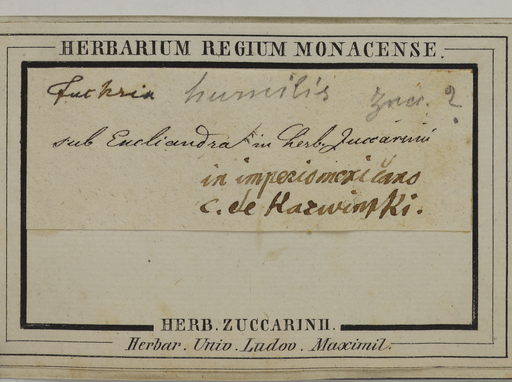 HERBARIUM REGIUM MONACENSE.
Fuchsia humilis Zucc. ?
sub Encliandra in herb. Zuccarinii
in imperio mexicano
C. de Karwinski.
HERB. ZUCCARINII.
Herbar. Univ. Ludov. Maximil.